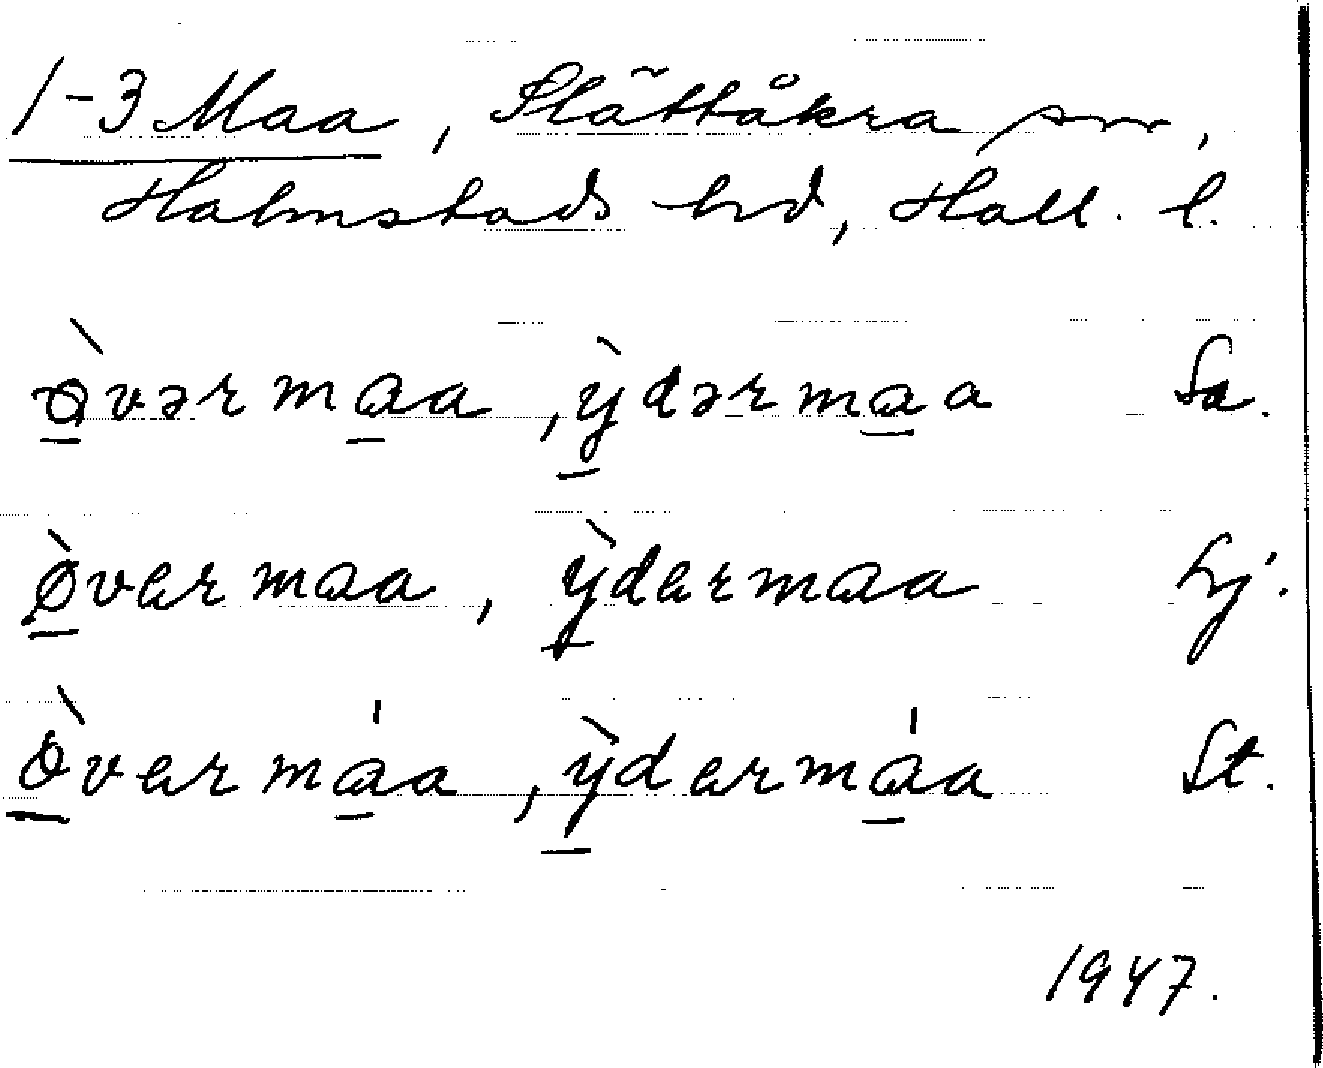 1-3 Maa, Slättåkra sn,
Halmstads hd, Hall. l.
ò̱vərma̱a, ỳ̱dərma̱a Sa.
ø̱̀vermaa, ỳ̱dermaa hj.
ò̱vermá̱a, ỳ̱dermá̱a St.
1947.